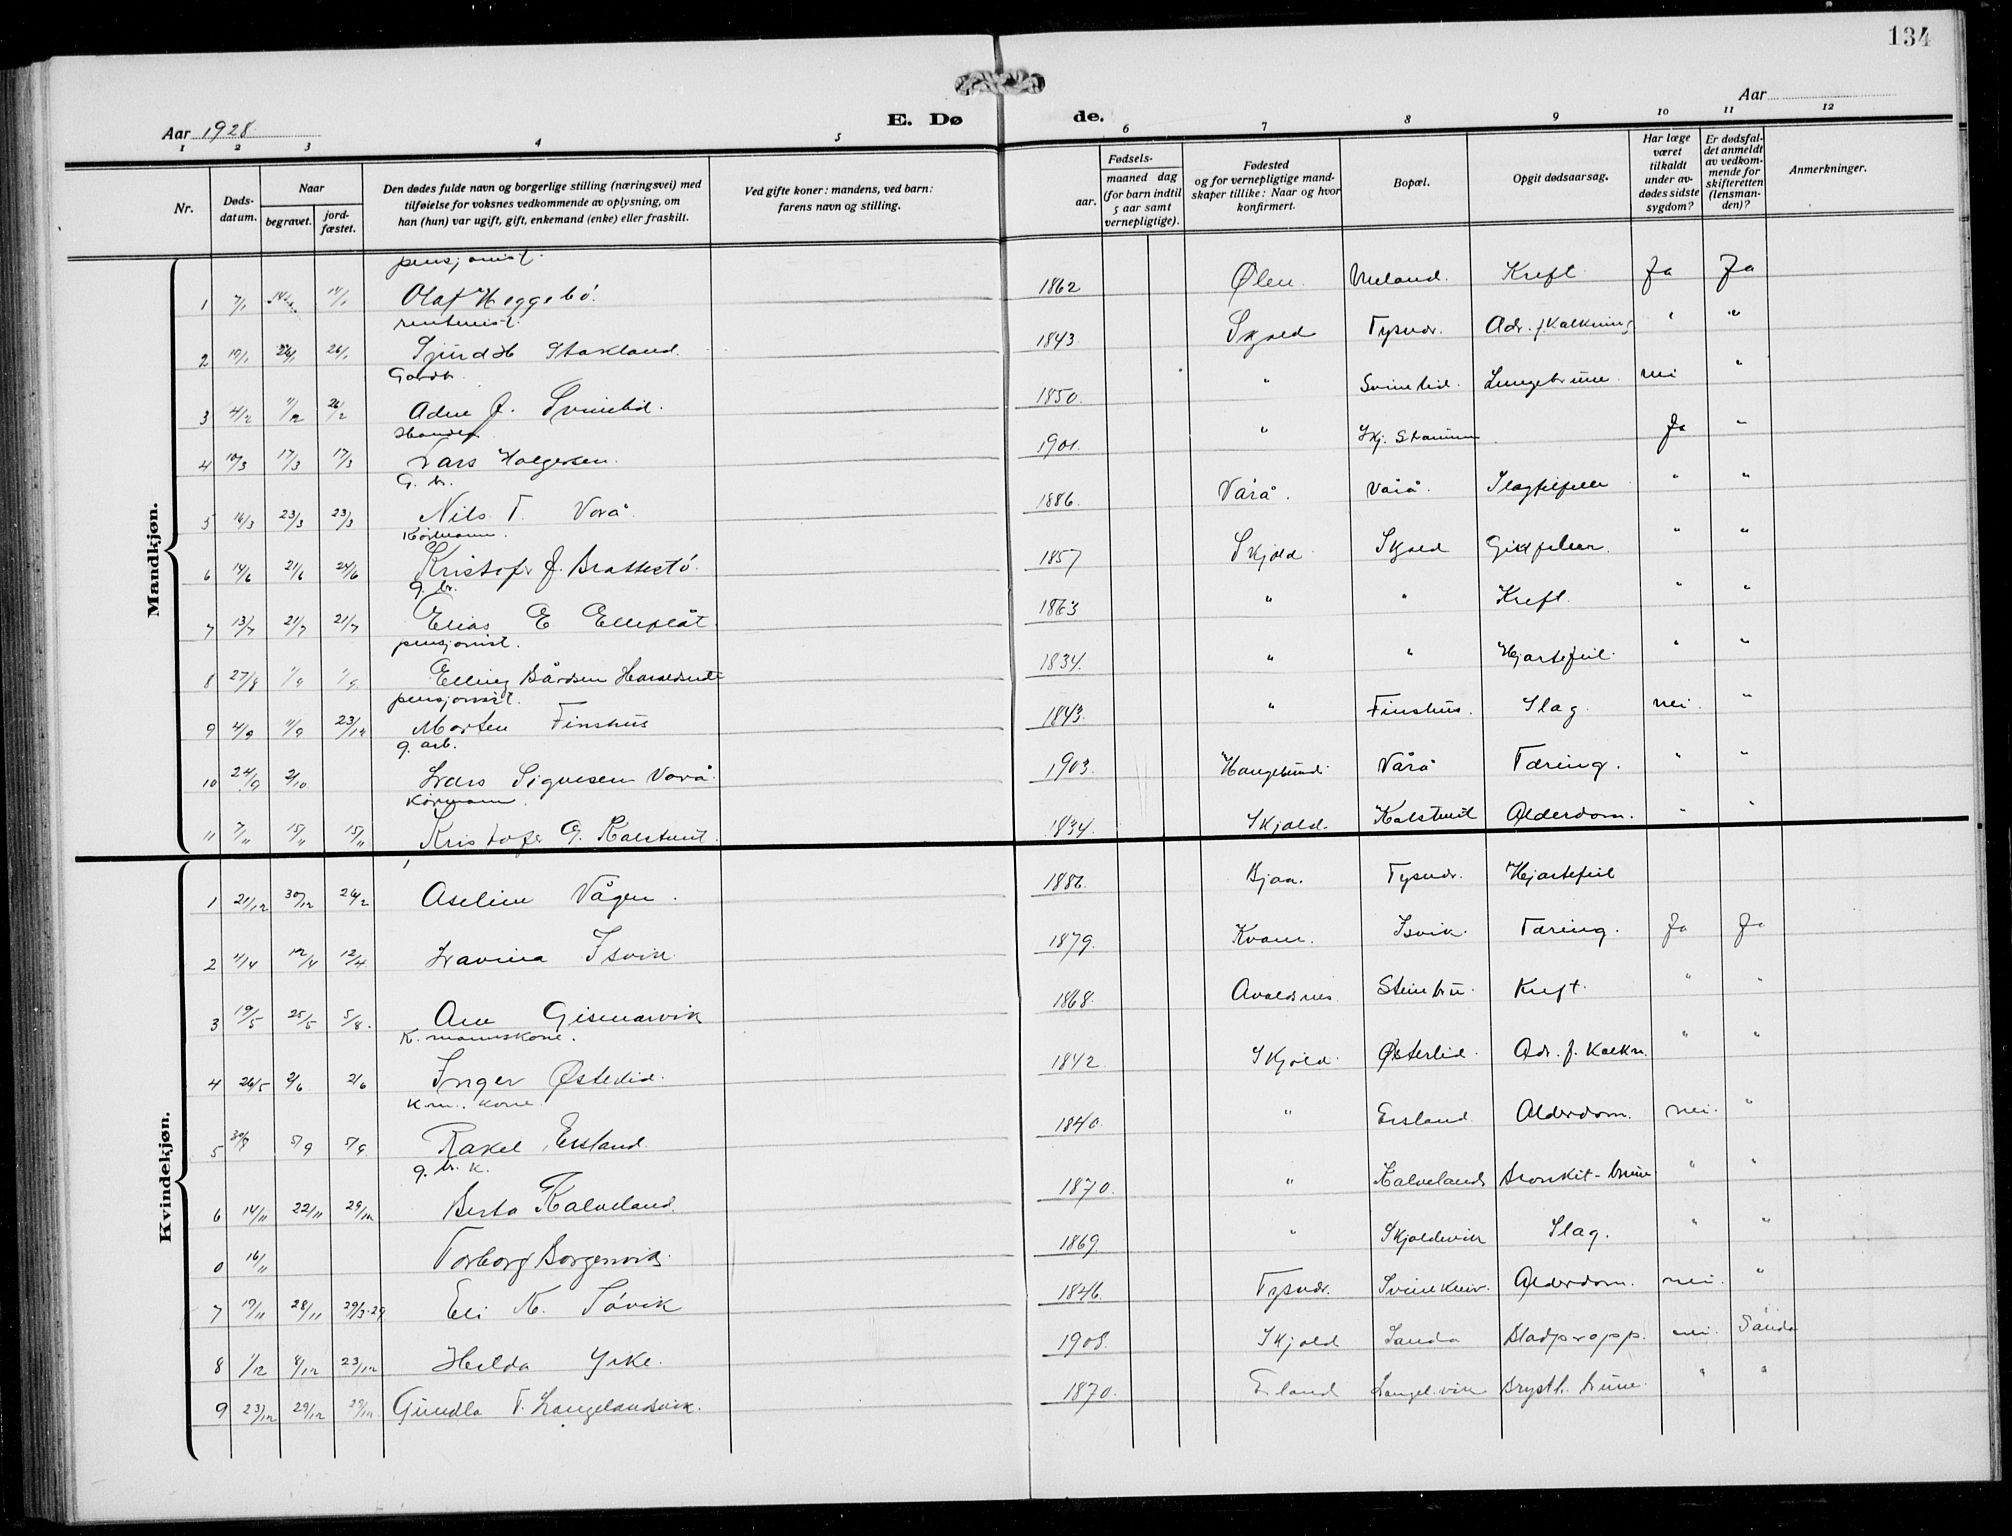 134
Aar 1928
E. Dø de.
Aar
1 2 3 4 5 6 7 8 9 10 11 12
Nr.
Døds-
datum.
Naar
begravet.
jord-
fæstet.
Den dødes fulde navn og borgerlige stilling (næringsvei) med
tilføielse for voksnes vedkommende av oplysning, om
han (hun) var ugift, gift, enkemand (enke) eller fraskilt.
Ved gifte koner: mandens, ved barn:
farens navn og stilling.
Fødsels-
aar.
maaned dag
(for barn indtil
5 aar samt
vernepligtige).
Fødested
og for vernepligtige mand-
skaper tillike: Naar og hvor
konfirmert.
Bopæl.
Opgit dødsaarsag.
Har læge
været
tilkaldt
under av-
dødes sidste
sygdom?
Er dødsfal-
det anmeldt
av vedkom-
mende for
skifteretten
(lensman-
den)?
Anmerkninger.
Mandkjøn.
pensjonist.
1 7/1 14/1 Olaf Heggebø. 1862 Ølen. Kreft Ja Ja
rentenist.
2 19/1 26/1 26/1 Sjurd H Stakland. 1843 Skjold Tysvær. Adr. f. Kalkning " "
Gardbr.
3 4/2 11/2 26/2 Adne J. Svinelid. 1850. " Svinelid. Lungebrune. nei "
4 10/3 17/3 17/3 Lars Holgersen. 1901. " Skj. Straumen Ja "
G. br.
5 16/3 23/3 23/3 Nils T. Vorå. 1886. Vårå. Vårå. " "
Kårmann.
6 14/6 21/6 24/6 Kristofer J. Brattestø. 1857 Skjold Skjold " "
g. br.
7 13/7 21/7 21/7 Elias E Elleflåt. 1863 " " Kreft. " "
pensjonist.
8 27/8 1/9 1/9 Elling Bårdsen 1834. " " Hjartefeil. " "
pensjonist.
9 4/9 11/9 23/12 Morten Finshus 1843. " Finshus. Slag. nei. "
g. arb.
10 24/9 2/10 Lars Sigvesen Vorå. 1903. Haugesund. Vårå Tæring. " "
Kårmann.
11 7/11 15/11 15/11 Kristofer G. Kalstveit. 1834. Skjold. Kalstveit Alderdom. " "
Kvindekjøn.
1 21/12 30/12 26/2 Aseline Vågen. 1886. Bjoa. Tysvær. Hjartefeil
2 4/4 12/4 12/4 Lavina Isvik. 1879. Kvam. Isvik. Tæring. Ja Ja
3 19/5 25/5 5/8. Ane Gismarvik 1868. Avaldsnes. Steinbru. Kreft. " "
K. mannskone.
4 26/5 2/6 2/6 Inger Østerlid. 1842. Skjold. Østerlid. Adr. f. Kalkn. " "
K.m. kone.
5 30/8 5/9 5/9 Rakel Ersland. 1840. " Ersland. Alderdom. nei. "
g. br. k.
6 14/11 22/11 29/12 Berta Kalveland. 1870. " Kalveland Bronkit-brune " "
0 16/11 Torborg Borgenvik. 1869. " Skjoldevik Slag. " "
7 19/11 28/11 29/3-29 Eli K. Søvik 1846. Tysvær. Alderdom. nei. "
8 1/12 8/12 23/12 Helda Yrke. 1908. Skjold Sanda Blodpropp. nei. Sanda
9 23/12 29/12 29/12 Gundla T. Langelandsvik. 1870. Langel.vik Brysth. brune. " "